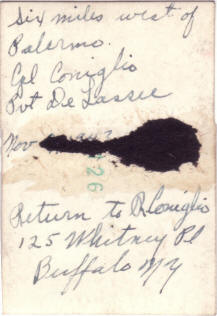 Six miles west of
Palermo.
Cpl Coniglio
Pvt De Lassee
Nov
26
Return to R Coniglio
125 Whitney Pl
Buffalo NY